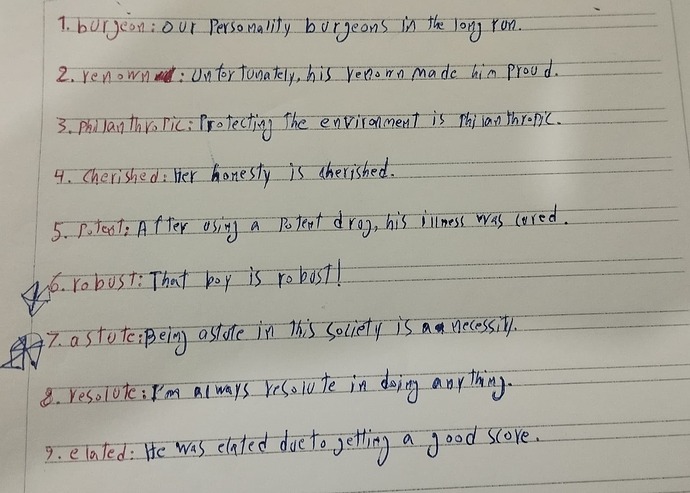 1. burgeon: Our Personality burgeons in the long run.
2. renown: Unfortunately, his renown made him proud.
3. Philanthropic: Protecting the environment is Philanthropic.
4. Cherished: Her honesty is cherished.
5. Potent: After using a Potent drog, his illness was cured.
6. robust: That boy is robost!
7. astute: Being astute in this society is a necessity.
8. resolute: I'm always resolute in doing anything.
9. elated: He was elated due to getting a good score.